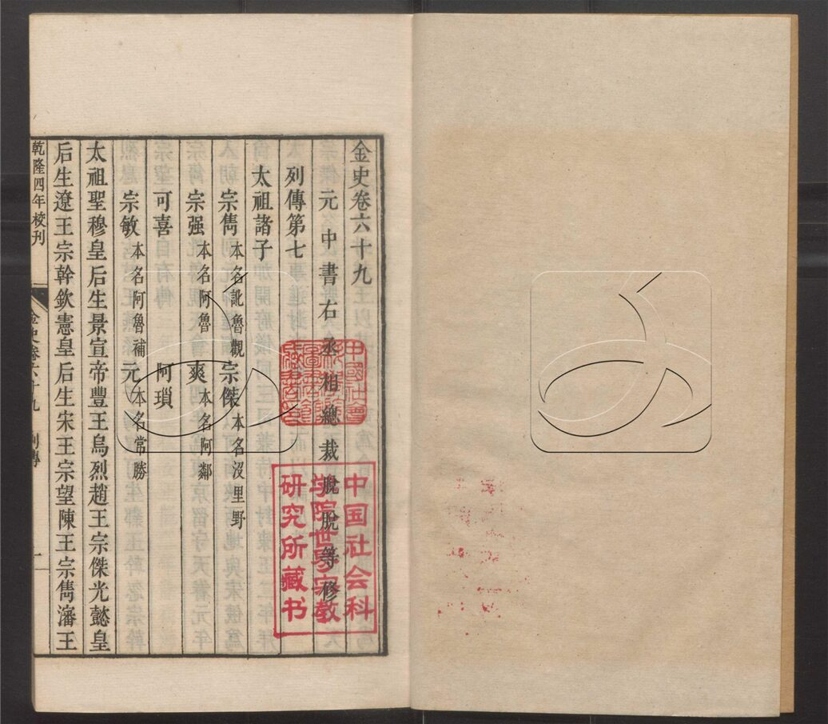 金史卷六十九
元中書右丞相總裁脫脫等修
列傳第七
太祖諸子
宗雋本名訛魯觀 宗傑本名沒里野
宗强本名阿魯 爽本名阿鄰
可喜 阿瑣
宗敏本名阿魯補 元本名常勝
太祖聖穆皇后生景宣帝豐王烏烈趙王宗傑光懿皇
后生遼王宗幹欽憲皇后生宋王宗望陳王宗雋瀋王
乾隆四年校刊
金史卷六十九 列傳 一
中国社会科
学院世界宗教
研究所藏书